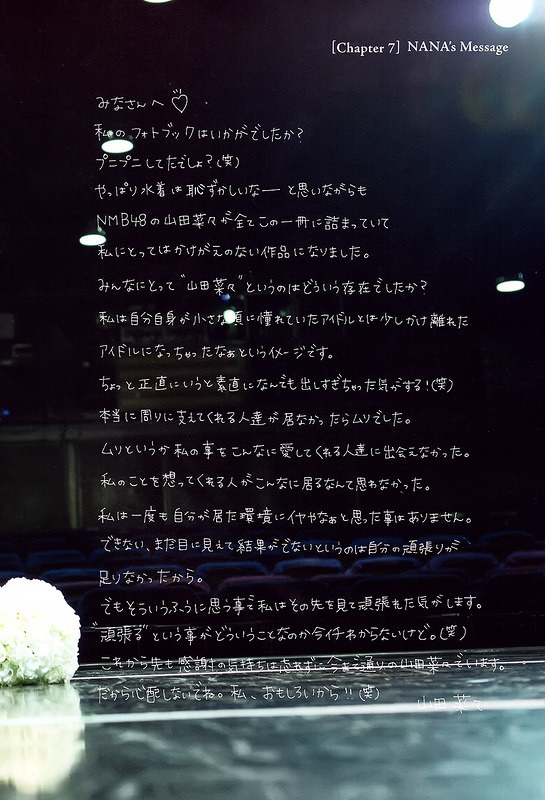 [Chapter 7] NANA's Message
みなさんへ♡
私のフォトブックはいかがでしたか?
プニプニしてたでしょ?(笑)
やっぱり水着は恥ずかしいなーと思いながらも
NMB48の山田菜々が全てこの一冊に詰まっていて
私にとってはかけがえのない作品になりました。
みんなにとって"山田菜々"というのはどういう存在でしたか?
私は自分自身が小さな頃に憧れていたアイドルとは少しかけ離れた
アイドルになっちゃったなぁというイメージです。
ちょっと正直にいうと素直になんでも出しすぎちゃった気がする!(笑)
本当に周りに支えてくれる人達が居なかったらムリでした。
ムリというか私の事をこんなに愛してくれる人達に出会えなかった。
私のことを想ってくれる人がこんなに居るなんて思わなかった。
私は一度も自分が居た環境にイヤやなぁと思った事はありません。
できない、まだ目に見えて結果がでないというのは自分の頑張りが
足りなかったから。
でもそういうふうに思う事で私はその先を見て頑張れた気がします。
"頑張る"という事がどういうことなのか今イチわからないけど。(笑)
これから先も感謝の気持ちは忘れずに今まで通りの山田菜々でいます。
だから心配しないでね。私、おもしろいから!!(笑)
山田菜々